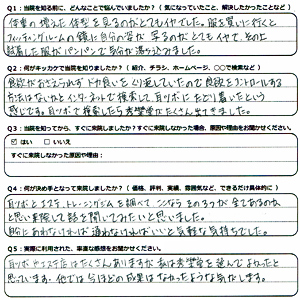 Q1：当院を知る前に、どんなことで悩んでいましたか？（気になっていたこと、解決したかったことなど）
体重の増えた体型を見るのがとてもイヤでした。服を買いに行くと
フィッティングルームの鏡に自分の姿が写るのがとてもイヤで、その上
試着した服がパンパンで気分が落ち込みました。
Q2：何がキッカケで当院を知りましたか？（紹介、チラシ、ホームページ、〇〇で検索など）
食欲がおさえられずドカ食いをくり返していたので食欲をコントロールする
方法はないかとインターネットで検索して、耳ツボにたどり着いたという
感じです。耳ツボで検索したら希望堂がたくさん出てきました。
Q3：当院を知ってから、すぐに来院しましたか？すぐに来院しなかった場合、原因や理由をお聞かせください。
はい　いいえ
すぐに来院しなかった原因や理由：
Q4：何が決め手となって来院しましたか？（価格、評判、実績、雰囲気など、できるだけ具体的に）
耳ツボとエステ、トレーニングジムを調べて、ここなら その3つが全てあるのね
と思い来院して話を聞いてみたいと思いました。
的にあわなければ通わなければいいと気軽な気持ちでした。
Q5：実際に利用された、率直な感想をお聞かせください。
耳ツボやエステ店はたくさんありますが私は希望堂を選んでよかったと
思っています。他では今ほどの成果はなかったような気がします。